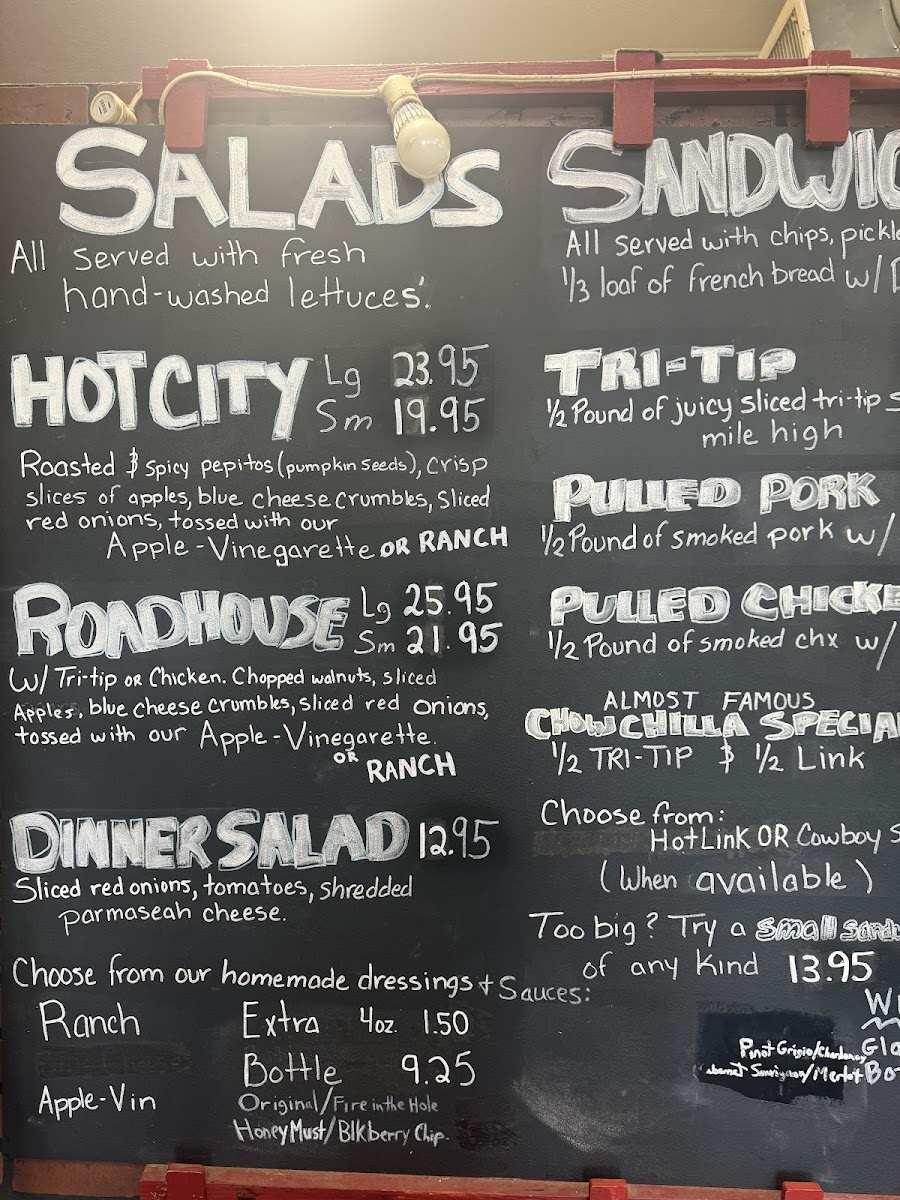 SALADS
All served with fresh
hand-washed lettuces'.
HOT CITY Lg 23.95
Sm 19.95
Roasted & spicy pepitos (pumpkin seeds), crisp
slices of apples, blue cheese crumbles, sliced
red onions, tossed with our
Apple-Vinegarette OR RANCH
ROADHOUSE Lg 25.95
Sm 21.95
W/ Tri-tip OR Chicken. Chopped walnuts, sliced
Apples, blue cheese crumbles, sliced red onions,
tossed with our Apple-Vinegarette.
OR RANCH
DINNER SALAD 12.95
Sliced red onions, tomatoes, shredded
parmaseah cheese.
Choose from our homemade dressings + Sauces:
Ranch Extra 4oz. 1.50
Bottle 9.25
Apple-Vin Original/Fire in the Hole
Honey Must/Blkberry Chip.
SANDWIC
All served with chips, pickle
1/3 loaf of french bread w/
TRI-TIP
1/2 Pound of juicy sliced tri-tip S
mile high
PULLED PORK
1/2 Pound of smoked pork w/
PULLED CHICKE
1/2 Pound of smoked chx w/
ALMOST FAMOUS
CHOWCHILLA SPECIAL
1/2 TRI-TIP & 1/2 Link
Choose from:
Hot Link OR Cowboy S
(When available)
Too big? Try a small sandw
of any kind 13.95
Wi
Pinot Grigio/Chardonnay Gla
abernet Sauvignon/Merlot Bo